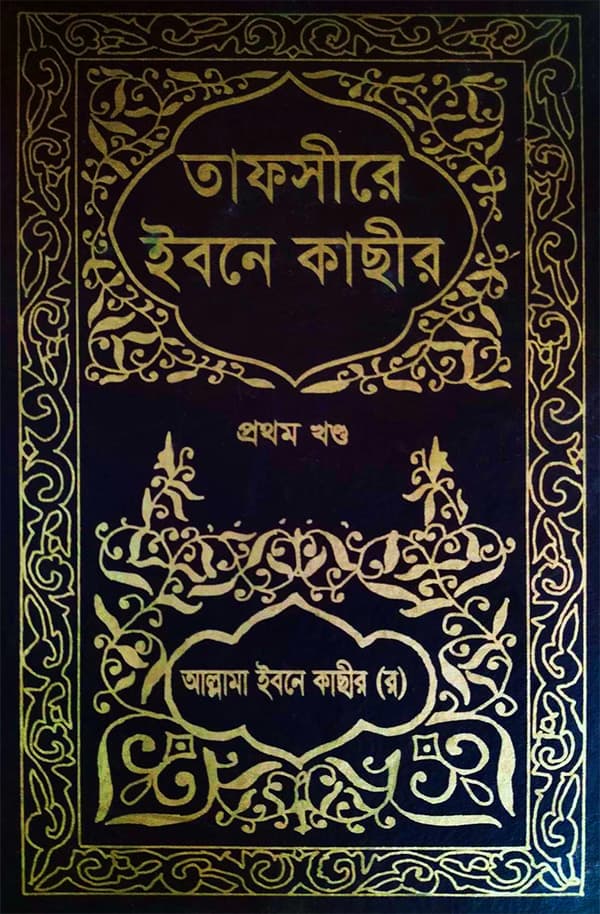 তাফসীরে
ইবনে কাছীর
প্রথম খণ্ড
আল্লামা ইবনে কাছীর (র)